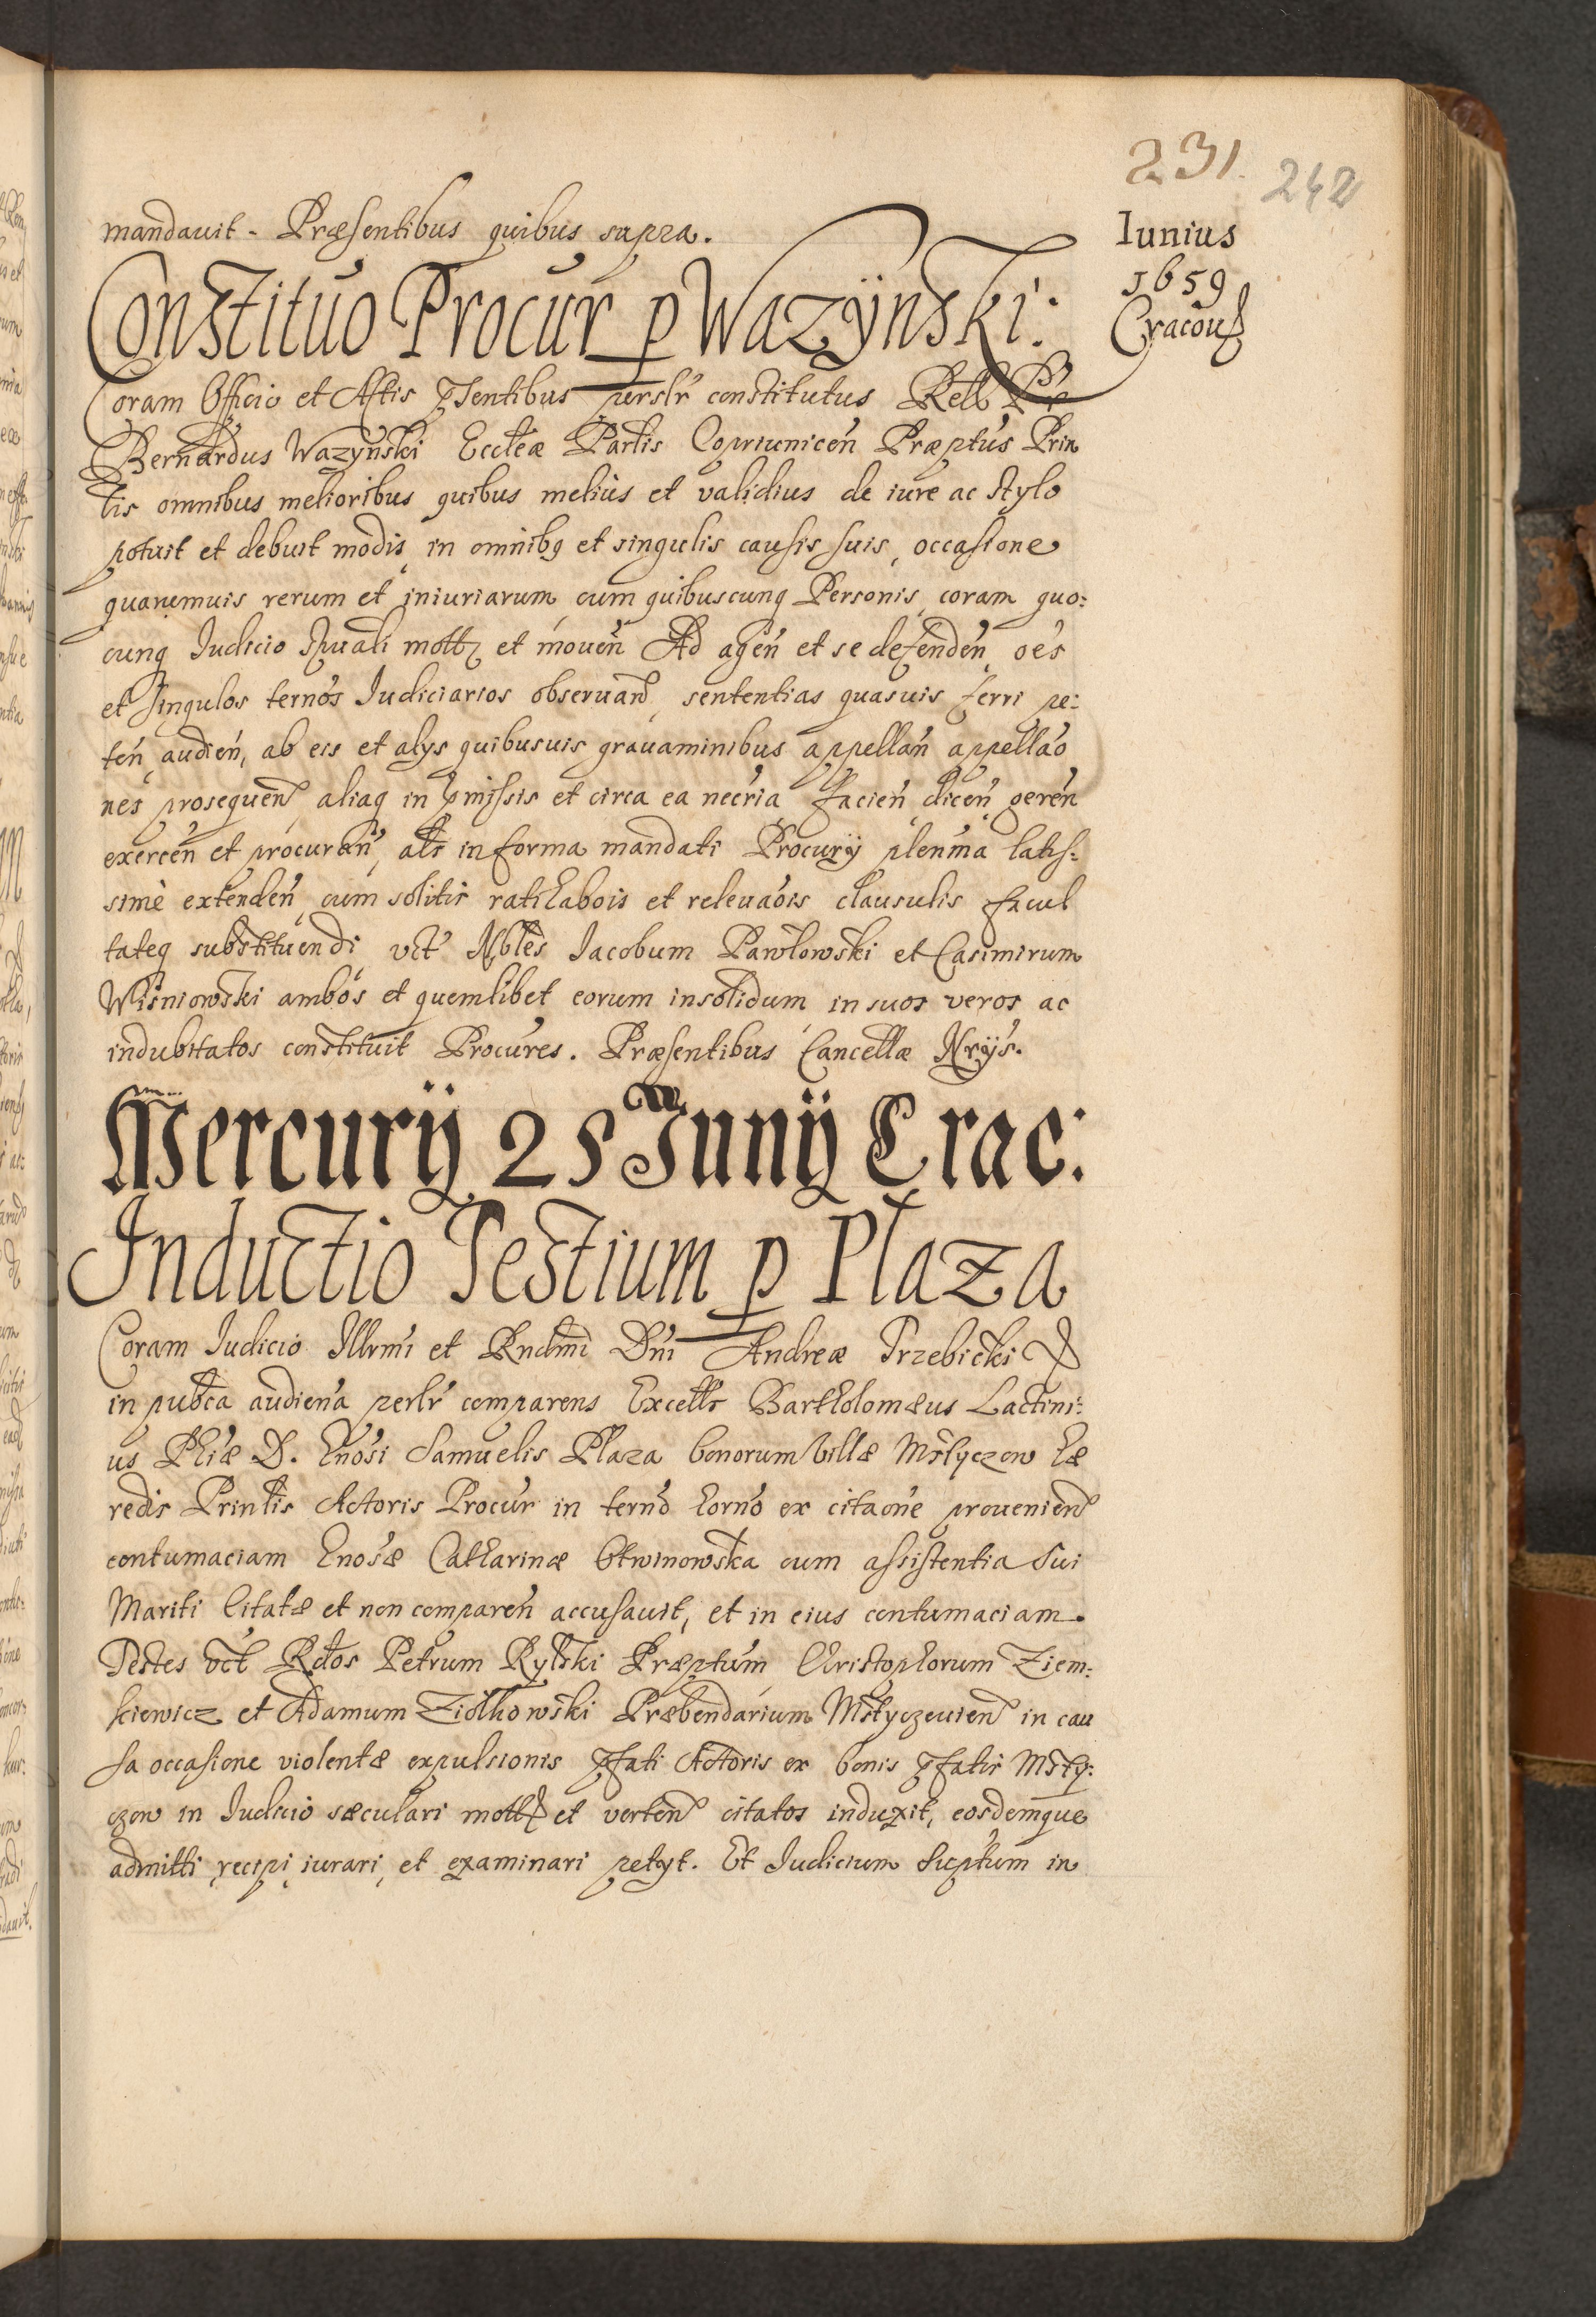 231. 242
Iunius
1659
Cracou
mandauit. Præsentibus quibus supra.
Constituo Procur p Wazÿnski:
Coram Officio et Actis pñtentibus perslr constitutus
Bernardus Wazynski Eccleæ Parlis Copriunicen Præptus Prin
lis omnibus melioribus quibus melius et validius de iure ac stylo
potuit et debuit modis, in omnibq et singulis causis suis, occasione
quarumuis rerum et iniuriarum, cum quibuscunq Personis, coram quo:
cunq Iudicio Spuali mott et mouen Ad agen et se defenden, oes
et singulos ternos Iudiciarios obseruand, sententias quasuis ferri pe:
ten, audien, ab eis et alys quibusuis grauaminibus appellan appellao
nes prosequen, aliaq in pmissis et circa ea necria facien, dicen, geren
exercen et procuran, als in forma mandati Procurÿ plenma latis:
simè extenden, cum solitis ratihabois et releuaois clausulis facul
tateq substituendi, vct Nbles Iacobum Pawlowski et Casimirum
Wiśniowski ambos et quemlibet eorum insolidum in suos veros ac
indubitatos constituit Procures. Præsentibus Cancellæ Nrÿs.
Mercurÿ 25 Junÿ Crac:
Inductio Testium p Plaza
Coram Iudicio Illrmi et Rndmi Dni Andreæ Trzebicki
in pubca audiena perlr comparens Excells Bartholomæus Lactini:
us Phiæ D. Gnosi Samuelis Plaza bonorum Villæ Mstyczow hæ
redis Prinlis Actoris Procur in terno horno ex citaone prouenien
contumaciam Gnosæ Catharinæ Otwinowska cum assistentia Sui
Mariti Citatæ et non comparen accusauit, et in eius contumaciam.
Testes vct Rdos Petrum Rylski Præptum, Christophorum Ziem:
kiewicz et Adamum Ziolkowski Præbendarium Mstyczeuien in cau
sa occasione violentæ expulsionis pfati Actoris ex bonis pfatis Msty:
czow in Iudicio sæculari mott et verten citatos induxit, eosdemque
admitti, recipi, iurari, et examinari petyt. Et Iudicium Suptum in